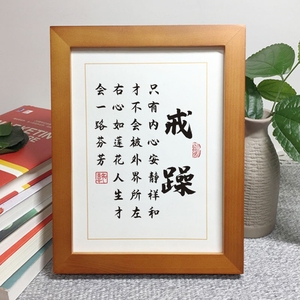 戒躁
只有内心安静祥和
才不会被外界所左
右心如莲花人生才
会一路芬芳